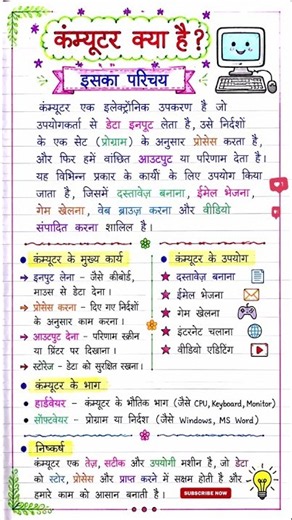 कंम्यूटर क्या है?
इसका परिचय
कंम्यूटर एक इलेक्ट्रॉनिक उपकरण है जो
उपयोगकर्ता से डेटा इनपूट लेता है, उसे निर्देशों
के एक सेट (प्रोग्राम) के अनुसार प्रोसेस करता है,
और फिर हमें वांछित आउटपुट या परिणाम देता है।
यह विभिन्न प्रकार के कार्यों के लिए उपयोग किया
जाता है, जिसमें दस्तावेज़ बनाना, ईमेल भेजना,
गेम खेलना, वेब ब्राउज़ करना और वीडियो
संपादित करना शालिल है।
कंम्यूटर के मुख्य कार्य
→ इनपुट लेना - जैसे कीबोर्ड,
माउस से डेटा देना।
→ प्रोसेस करना - दिए गए निर्देशों
के अनुसार काम करना।
→ आउटपुट देना - परिणाम स्क्रीन
या प्रिंटर पर दिखाना।
→ स्टोरेज - डेटा को सुरक्षित रखना।
कंम्यूटर के उपयोग
दस्तावेज़ बनाना
ईमेल भेजना
गेम खेलना
इंटरनेट चलाना
वीडियो एडिटिंग
कंम्यूटर के भाग
हार्डवेयर - कंम्यूटर के भौतिक भाग (जैसे CPU, Keyboard, Monitor)
सॉफ्टवेयर - प्रोग्राम या निर्देश (जैसे Windows, MS Word)
निष्कर्ष
कंम्यूटर एक तेज़, सटीक और उपयोगी मशीन है, जो डेटा
को स्टोर, प्रोसेस और प्राप्त करने में सक्षम होती है और
हमारे काम को आसान बनाती है।
SUBSCRIBE NOW